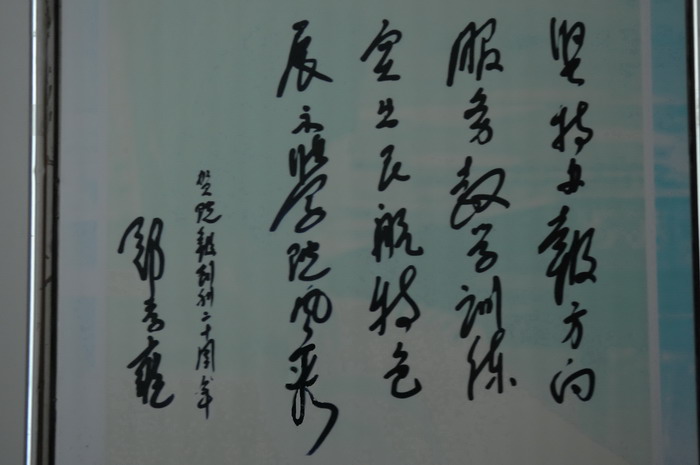 坚持办报方向
服务教学训练
突出民航特色
展示学院风采
贺院报创刊二十周年
郑孝雍